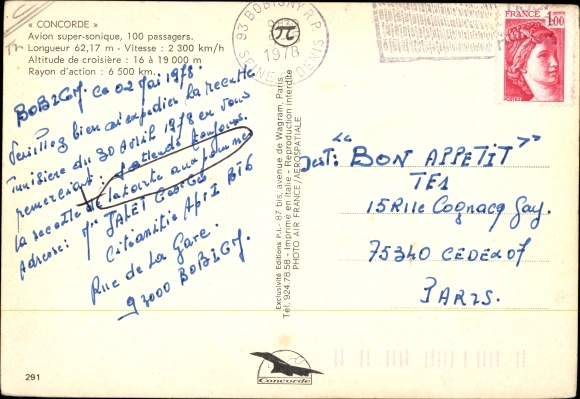 « CONCORDE »
Avion super-sonique, 100 passagers.
Longueur 62,17 m - Vitesse : 2 300 km/h
Altitude de croisière : 16 à 19 000 m
Rayon d'action : 6 500 km.
BOBIGNY. Ce 02 Mai 1978.
Veuillez bien m'expedier la recette
Tunisienne du 30 Avril 1978 en vous
remerciant : J'attends toujours.
la recette de la tarte aux pommes
Adresse : Mr JALET Georges
Citéanitié Apt Z Bt6
Rue de La Gare.
93000 BOBIGNY.
291
Exclusivité Editions P.I. - 87 bis, avenue de Wagram, Paris.
Tél. 924.78.58 - Imprimé en Italie - Reproduction interdite
PHOTO AIR FRANCE/AEROSPATIALE
Concorde
93 BOBIGNY R.P.
1978
SEINE-ST-DENIS
FRANCE
1,00
"BON APPETIT"
TF1
15 Rue Cognacq Jay.
75340 CEDEX 07
PARIS.